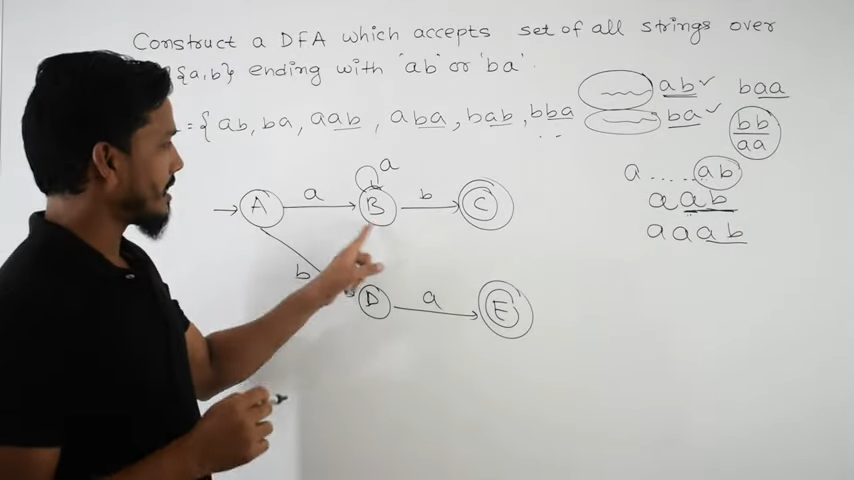 Construct a DFA which accepts set of all strings over
{a,b} ending with 'ab' or 'ba'.
= { ab, ba, aab, aba, bab, bba
. .
ab ✓
ba ✓
baa
bb
aa
a.....ab
aab
aaab
a
A a B b C
b
D a E